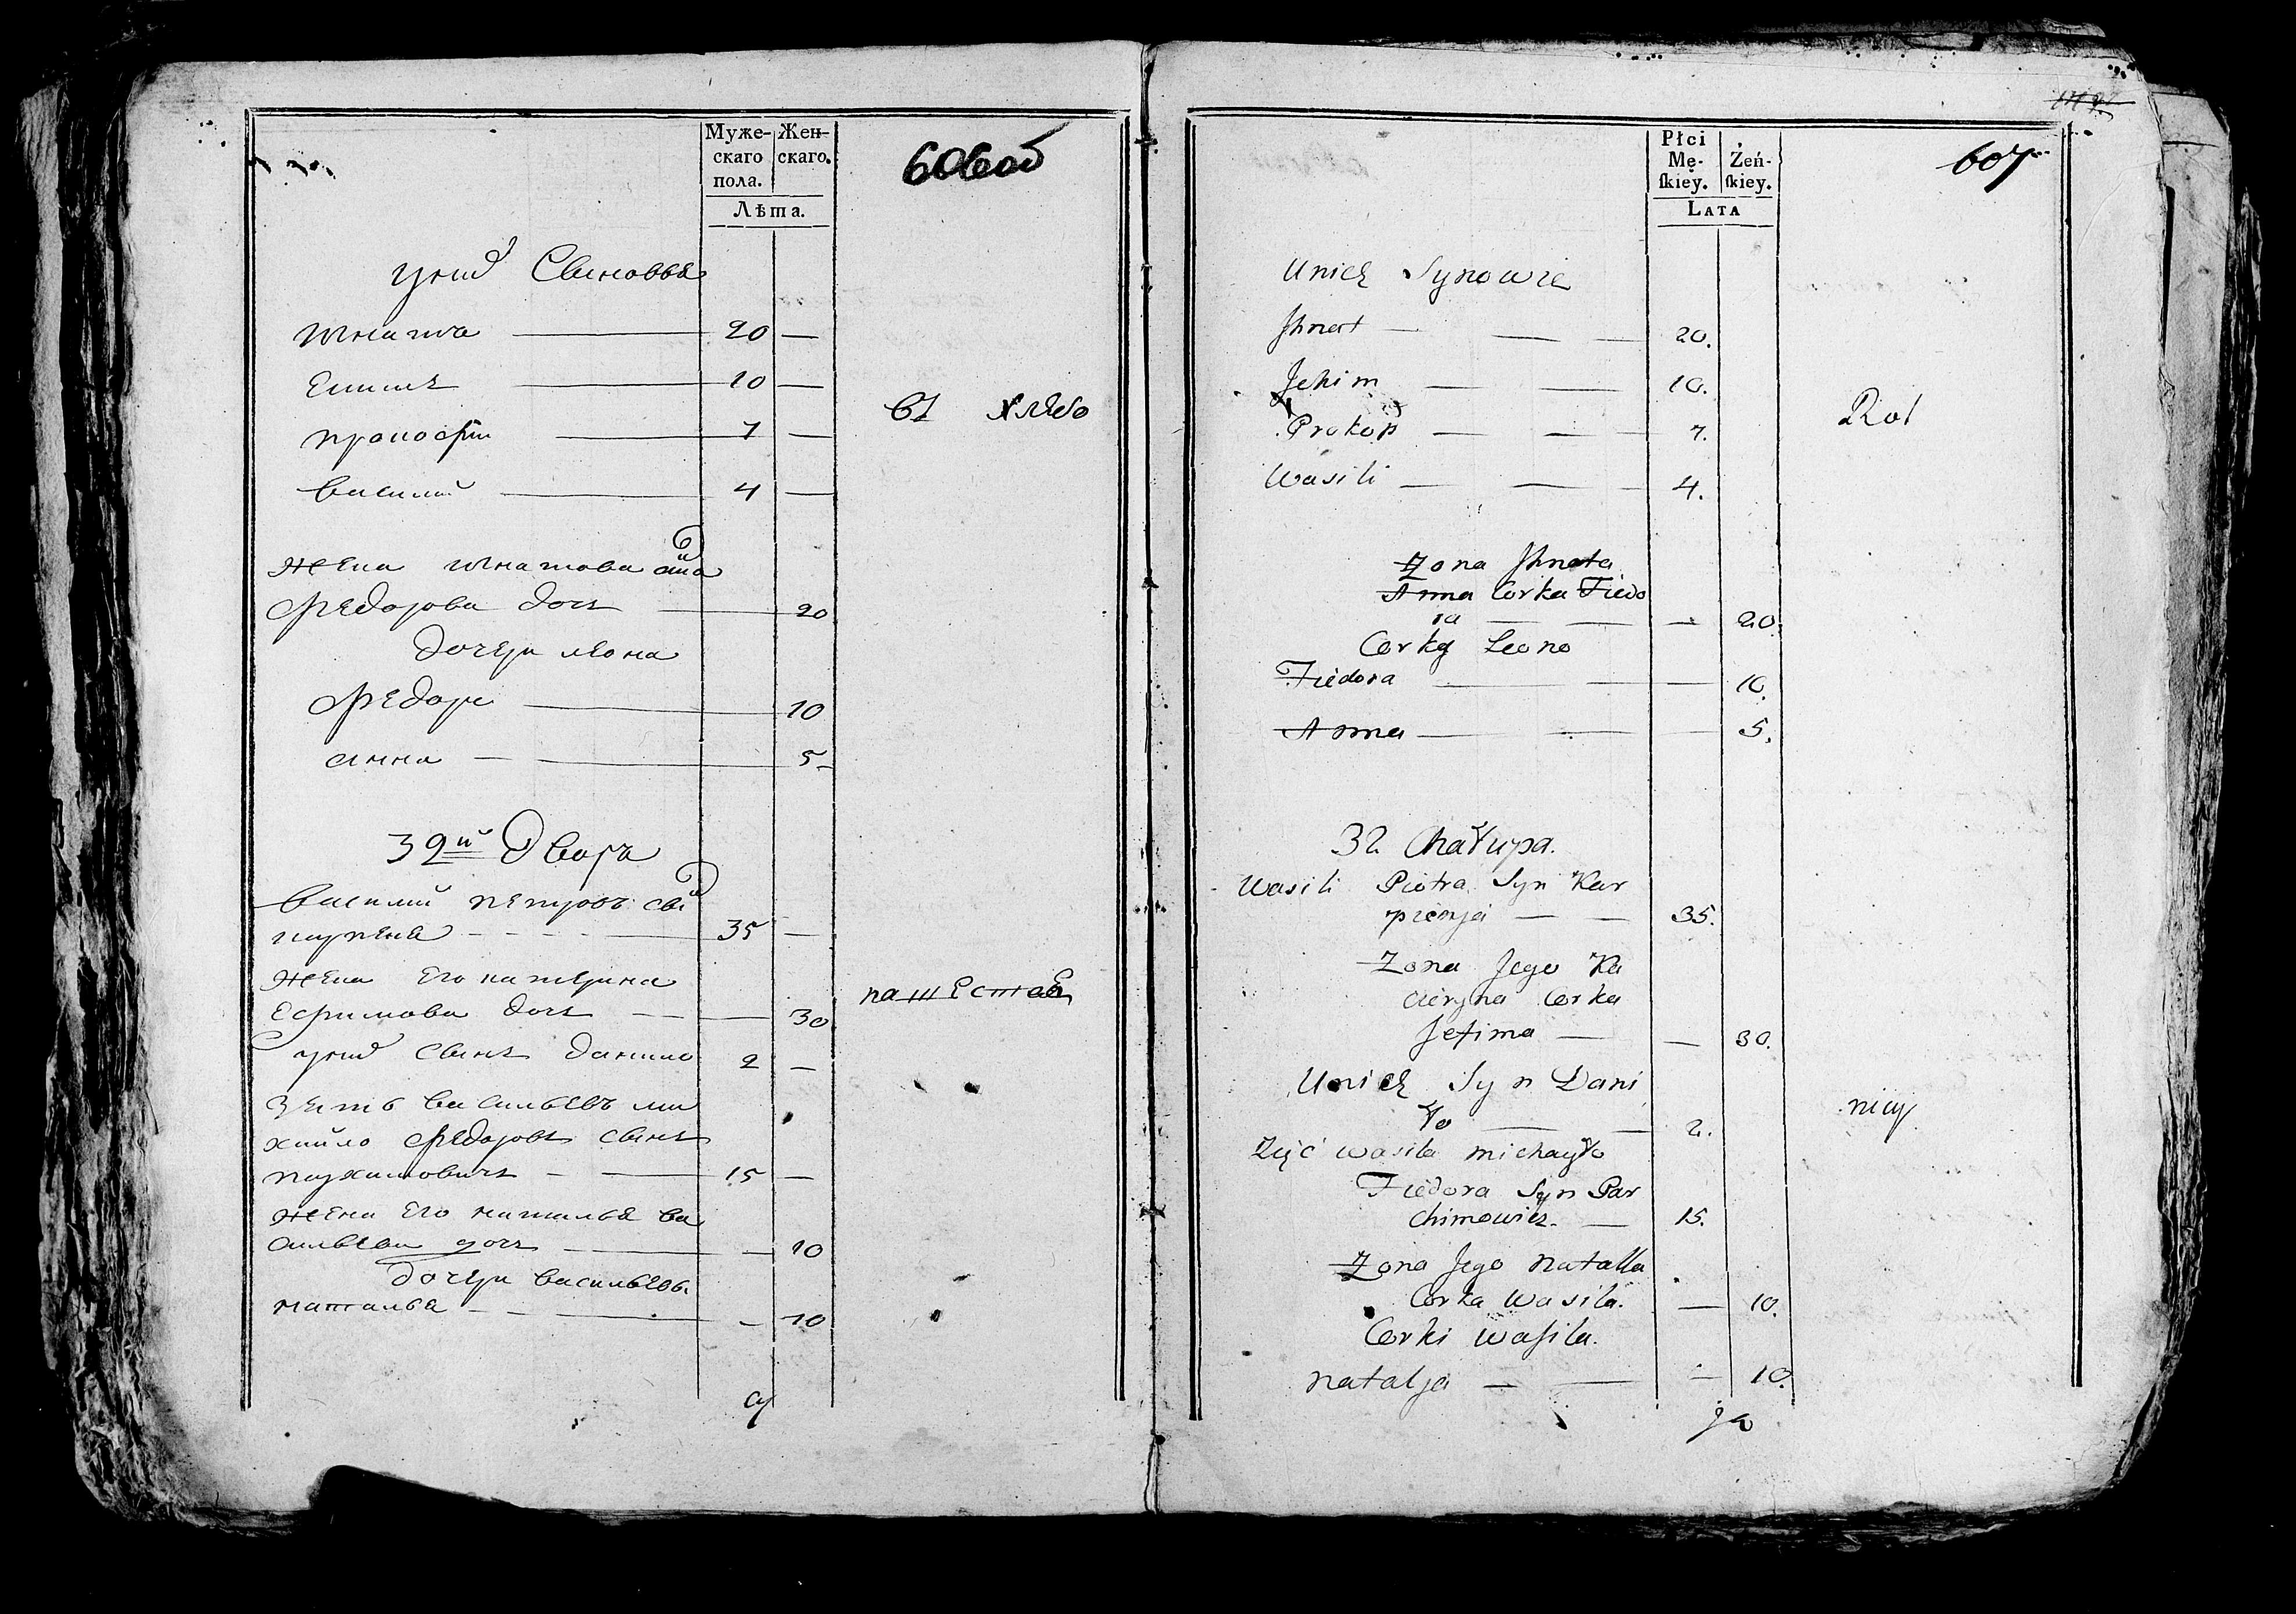 Муже-
скаго
пола.
Жен-
скаго.
Лѣта.
606об
у них Сыновья
Игната — 20 —
Ефимъ — 10 —
прокофи — 7 —
василий — 4 —
жена игнатова
федорова дочь — 20
дочери леона
федоря — 10
анна — 5 —
въ хлебо
32й Дворъ
василий петровъ сынъ
35 —
жена его катерина
ефимова дочь — — 30
у них сынъ данило 2 —
зять васильевъ ми
хайло федоровъ сынъ
пархимовичъ — 15 —
жена его наталья ва
сильева дочь — — 10
дочери васильевы
наталья — — 10
Płci
Mę-
ſkiey.
Żeń-
ſkiey.
LATA
607
Unich Synowie
Jhnat — 20.
Jehim — 10.
Prokop — 7.
Wasili — 4.
Rol
Zona Jhnata
Anna Corka Fiedo
ra — — 20.
Corky Leona
Fiedora — — 10.
Anna — — 5.
32 Chałupa.
Wasili Piotra Syn Kar
pienja — 35.
Zona Jego Ka
cieryna Corka
Jefima — — 30.
Unich Syn Dani
ło — 2.
nicy
Zięć wasila michayło
Fiedora Syn Par
chimowicz — 15.
Zona Jego Natalla
Corka Wasila. — 10.
Corki waſila.
natalja — — 10.